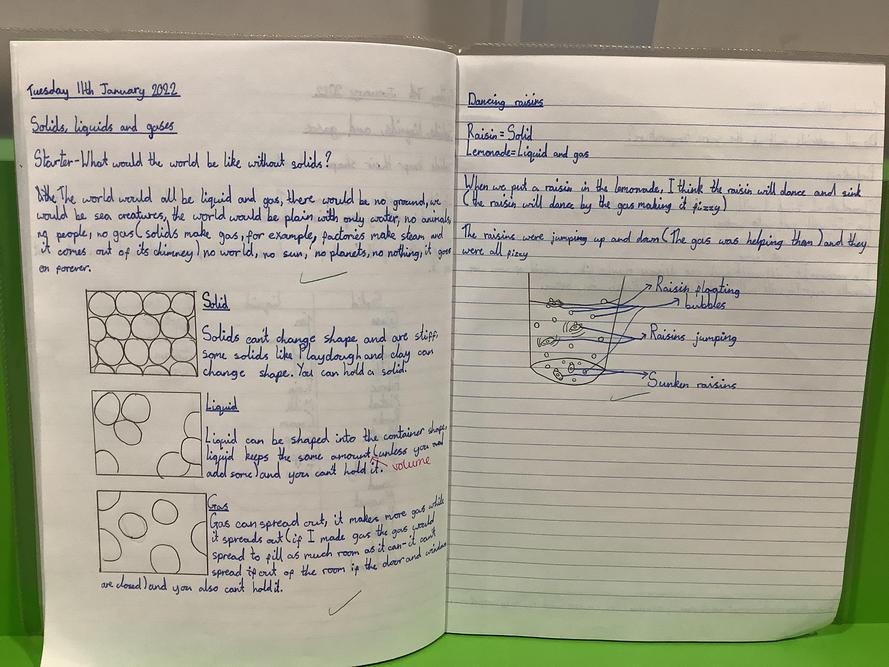 Tuesday 11th January 2022
Solids, liquids and gases
Starter-What would the world be like without solids?
The world would all be liquid and gas, there would be no ground, we
would be sea creatures, the world would be plain with only water, no animals,
no people, no gas (solids make gas, for example, factories make steam and
it comes out of its chimney) no world, no sun, no planets, no nothing, it goes
on forever.
Solid
Solids can't change shape and are stiff,
some solids like Playdough and clay can
change shape. You can hold a solid.
Liquid
Liquid can be shaped into the container shape,
liquid keeps the same amount (unless you
add some) and you can't hold it. volume
Gas
Gas can spread out, it makes more gas while
it spreads out (if I made gas the gas would
spread to fill as much room as it can-it can't
spread out of the room if the door and window
are closed) and you also can't hold it.
Dancing raisins
Raisin=Solid
Lemonade=Liquid and gas
When we put a raisin in the lemonade, I think the raisin will dance and sink
(the raisin will dance by the gas making it fizzy)
The raisins were jumping up and down (The gas was helping them) and they
were all fizzy
Raisin floating
bubbles
Raisins jumping
Sunken raisins